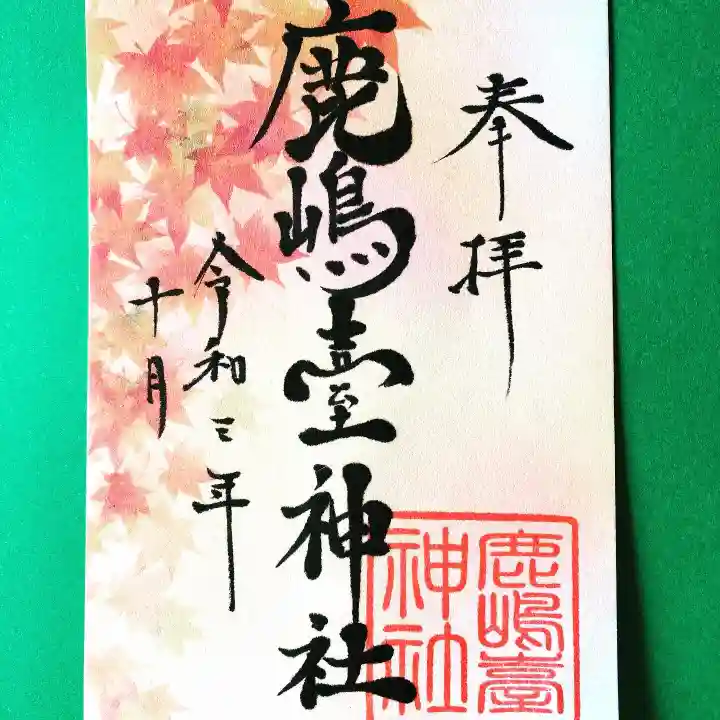 奉拝
鹿嶋臺神社
鹿嶋臺
神社
令和三年
十月